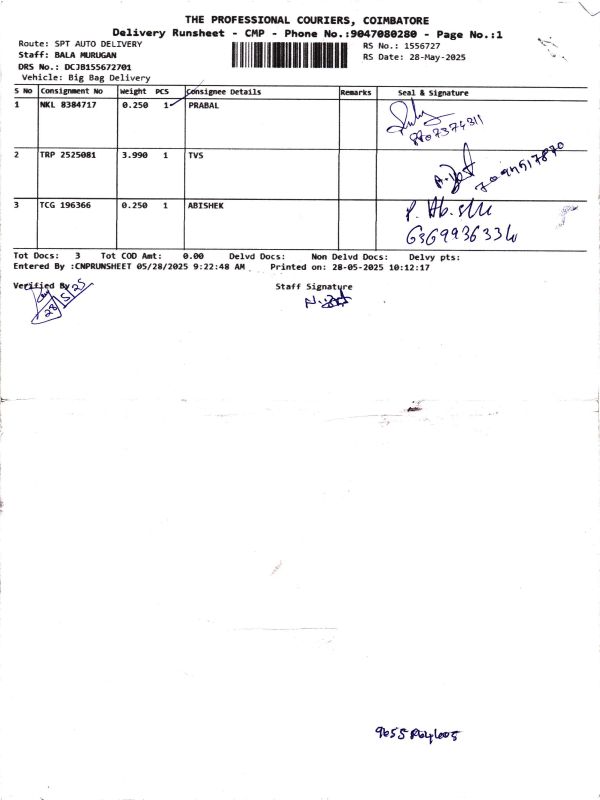 THE PROFESSIONAL COURIERS, COIMBATORE
Delivery Runsheet - CMP - Phone No.:9047080280 - Page No.:1
Route: SPT AUTO DELIVERY RS No.: 1556727
Staff: BALA MURUGAN RS Date: 28-May-2025
DRS No.: DCJB155672701
Vehicle: Big Bag Delivery
S No Consignment No Weight PCS Consignee Details Remarks Seal & Signature
1 NKL 8384717 0.250 1 PRABAL
2 TRP 2525081 3.990 1 TVS
3 TCG 196366 0.250 1 ABISHEK
6369936334
Tot Docs: 3 Tot COD Amt: 0.00 Delvd Docs: Non Delvd Docs: Delvy pts:
Entered By :CNPRUNSHEET 05/28/2025 9:22:48 AM Printed on: 28-05-2025 10:12:17
Verified By Staff Signature
28/5/25